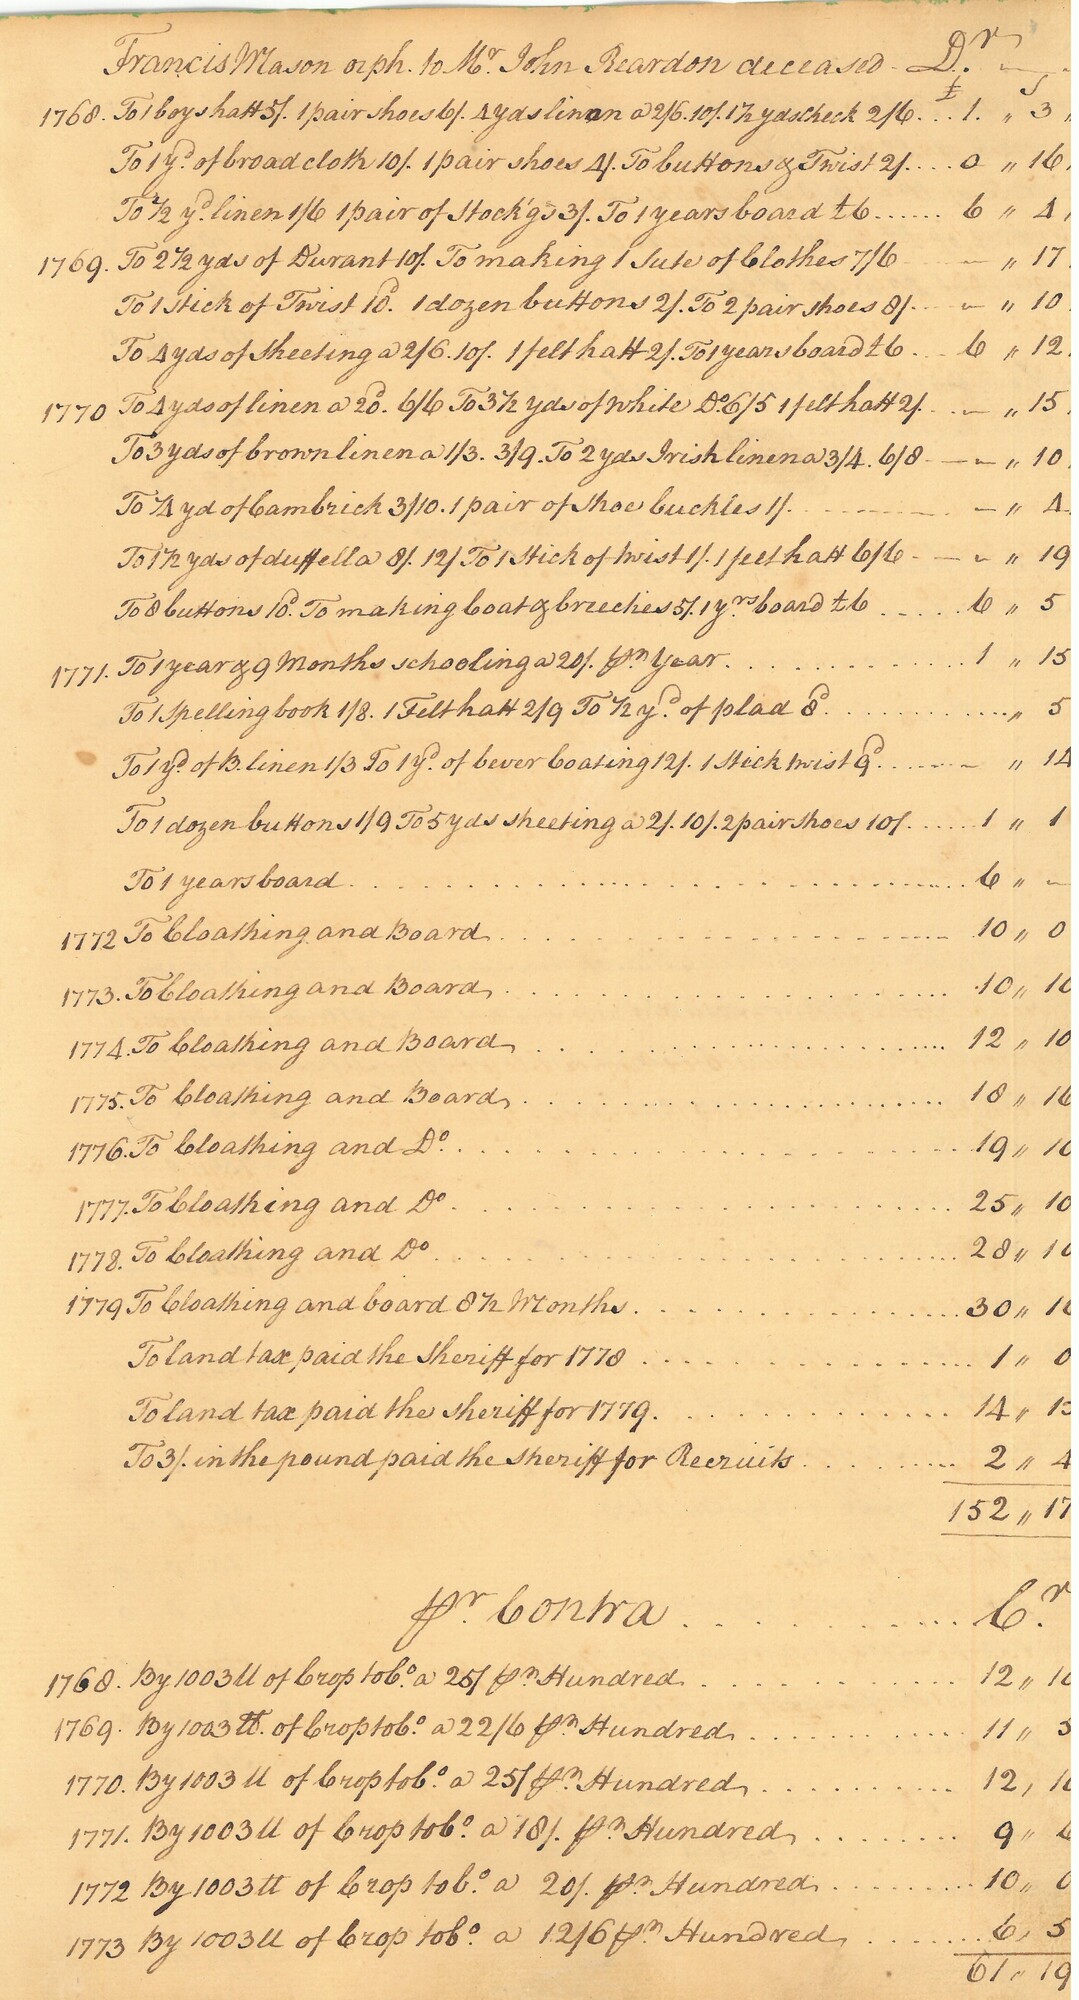 Francis Mason orph. to Mr. John Reardon deceased Dr.
£ S
1768. To 1 boys hatt 5/. 1 pair shoes 6/. 4 yds linen a 2/6. 10/. 1½ yds check 2/6 ... 1. " 3 "
To 1 yd. of broad cloth 10/. 1 pair shoes 4/. To buttons & Twist 2/. ... 0 " 16
To ½ yd. linen 1/6 1 pair of Stock'gs 3/. To 1 years board £6 ...... 6 " 4
1769. To 2½ yds of Durant 10/. To making 1 Sute of Clothes 7/6 — " 17
To 1 stick of Twist 10d. 1 dozen buttons 2/. To 2 pair shoes 8/. — " 10
To 4 yds of sheeting a 2/6. 10/. 1 felt hatt 2/. To 1 years board £6 .. 6 " 12
1770 To 4 yds of linen a 20d. 6/6 To 3½ yds of white Do. 6/5 1 felt hatt 2/. .. — " 15
To 3 yds of brown linen a 1/3. 3/9. To 2 yds Irish linen a 3/4. 6/8 — " 10
To ¼ yd of Cambrick 3/10. 1 pair of Shoe buckles 1/. — " 4
To 1½ yds of duffell a 8/. 12/ To 1 Stick of twist 1/. 1 felt hatt 6/6 — " 19
To 8 buttons 10d. To making Coat & breeches 5/. 1 yrs board £6 ..... 6 " 5
1771. To 1 year & 9 Months schooling a 20/. pn year. ............ 1 " 15
To 1 spelling book 1/8. 1 Felt hatt 2/9 To ½ yd. of plad 8d. .............. " 5
To 1 yd. of B. linen 1/3 To 1 yd. of bever Coating 12/. 1 stick twist 9d. ...... — " 14
To 1 dozen buttons 1/9 To 5 yds sheeting a 2/. 10/. 2 pair shoes 10/. ...... 1 " 1
To 1 years board ............................ 6 " —
1772 To Cloathing and Board .................. 10 " 0
1773. To Cloathing and Board .................. 10 " 10
1774. To Cloathing and Board .................. 12 " 10
1775. To Cloathing and Board .................. 18 " 10
1776. To Cloathing and Do. .................. 19 " 10
1777. To Cloathing and Do .................. 25 " 10
1778. To Cloathing and Do .................. 28 " 10
1779 To Cloathing and board 8½ Months .............. 30 " 10
To land tax paid the Sheriff for 1778 .............. 1 " 0
To land tax paid the sheriff for 1779. ............ 14 " 13
To 3/. in the pound paid the sheriff for Recruits .......... 2 " 4
152 " 17
pr. Contra .......... Cr.
1768. By 1003 ll of Crop tobo. a 25/ pn Hundred ............ 12 " 10
1769. By 1003 ll. of Crop tobo. a 22/6 pn Hundred .......... 11 " 5
1770. By 1003 ll of Crop tobo. a 25/ pn Hundred .......... 12, 10
1771. By 1003 ll of Crop tobo. a 18/. pn Hundred ......... 9 "
1772 By 1003 ll of Crop tobo. a 20/. pn Hundred ......... 10 " 0
1773 By 1003 ll of Crop tobo. a 12/6 pn Hundred ......... 6, 5
61 " 19